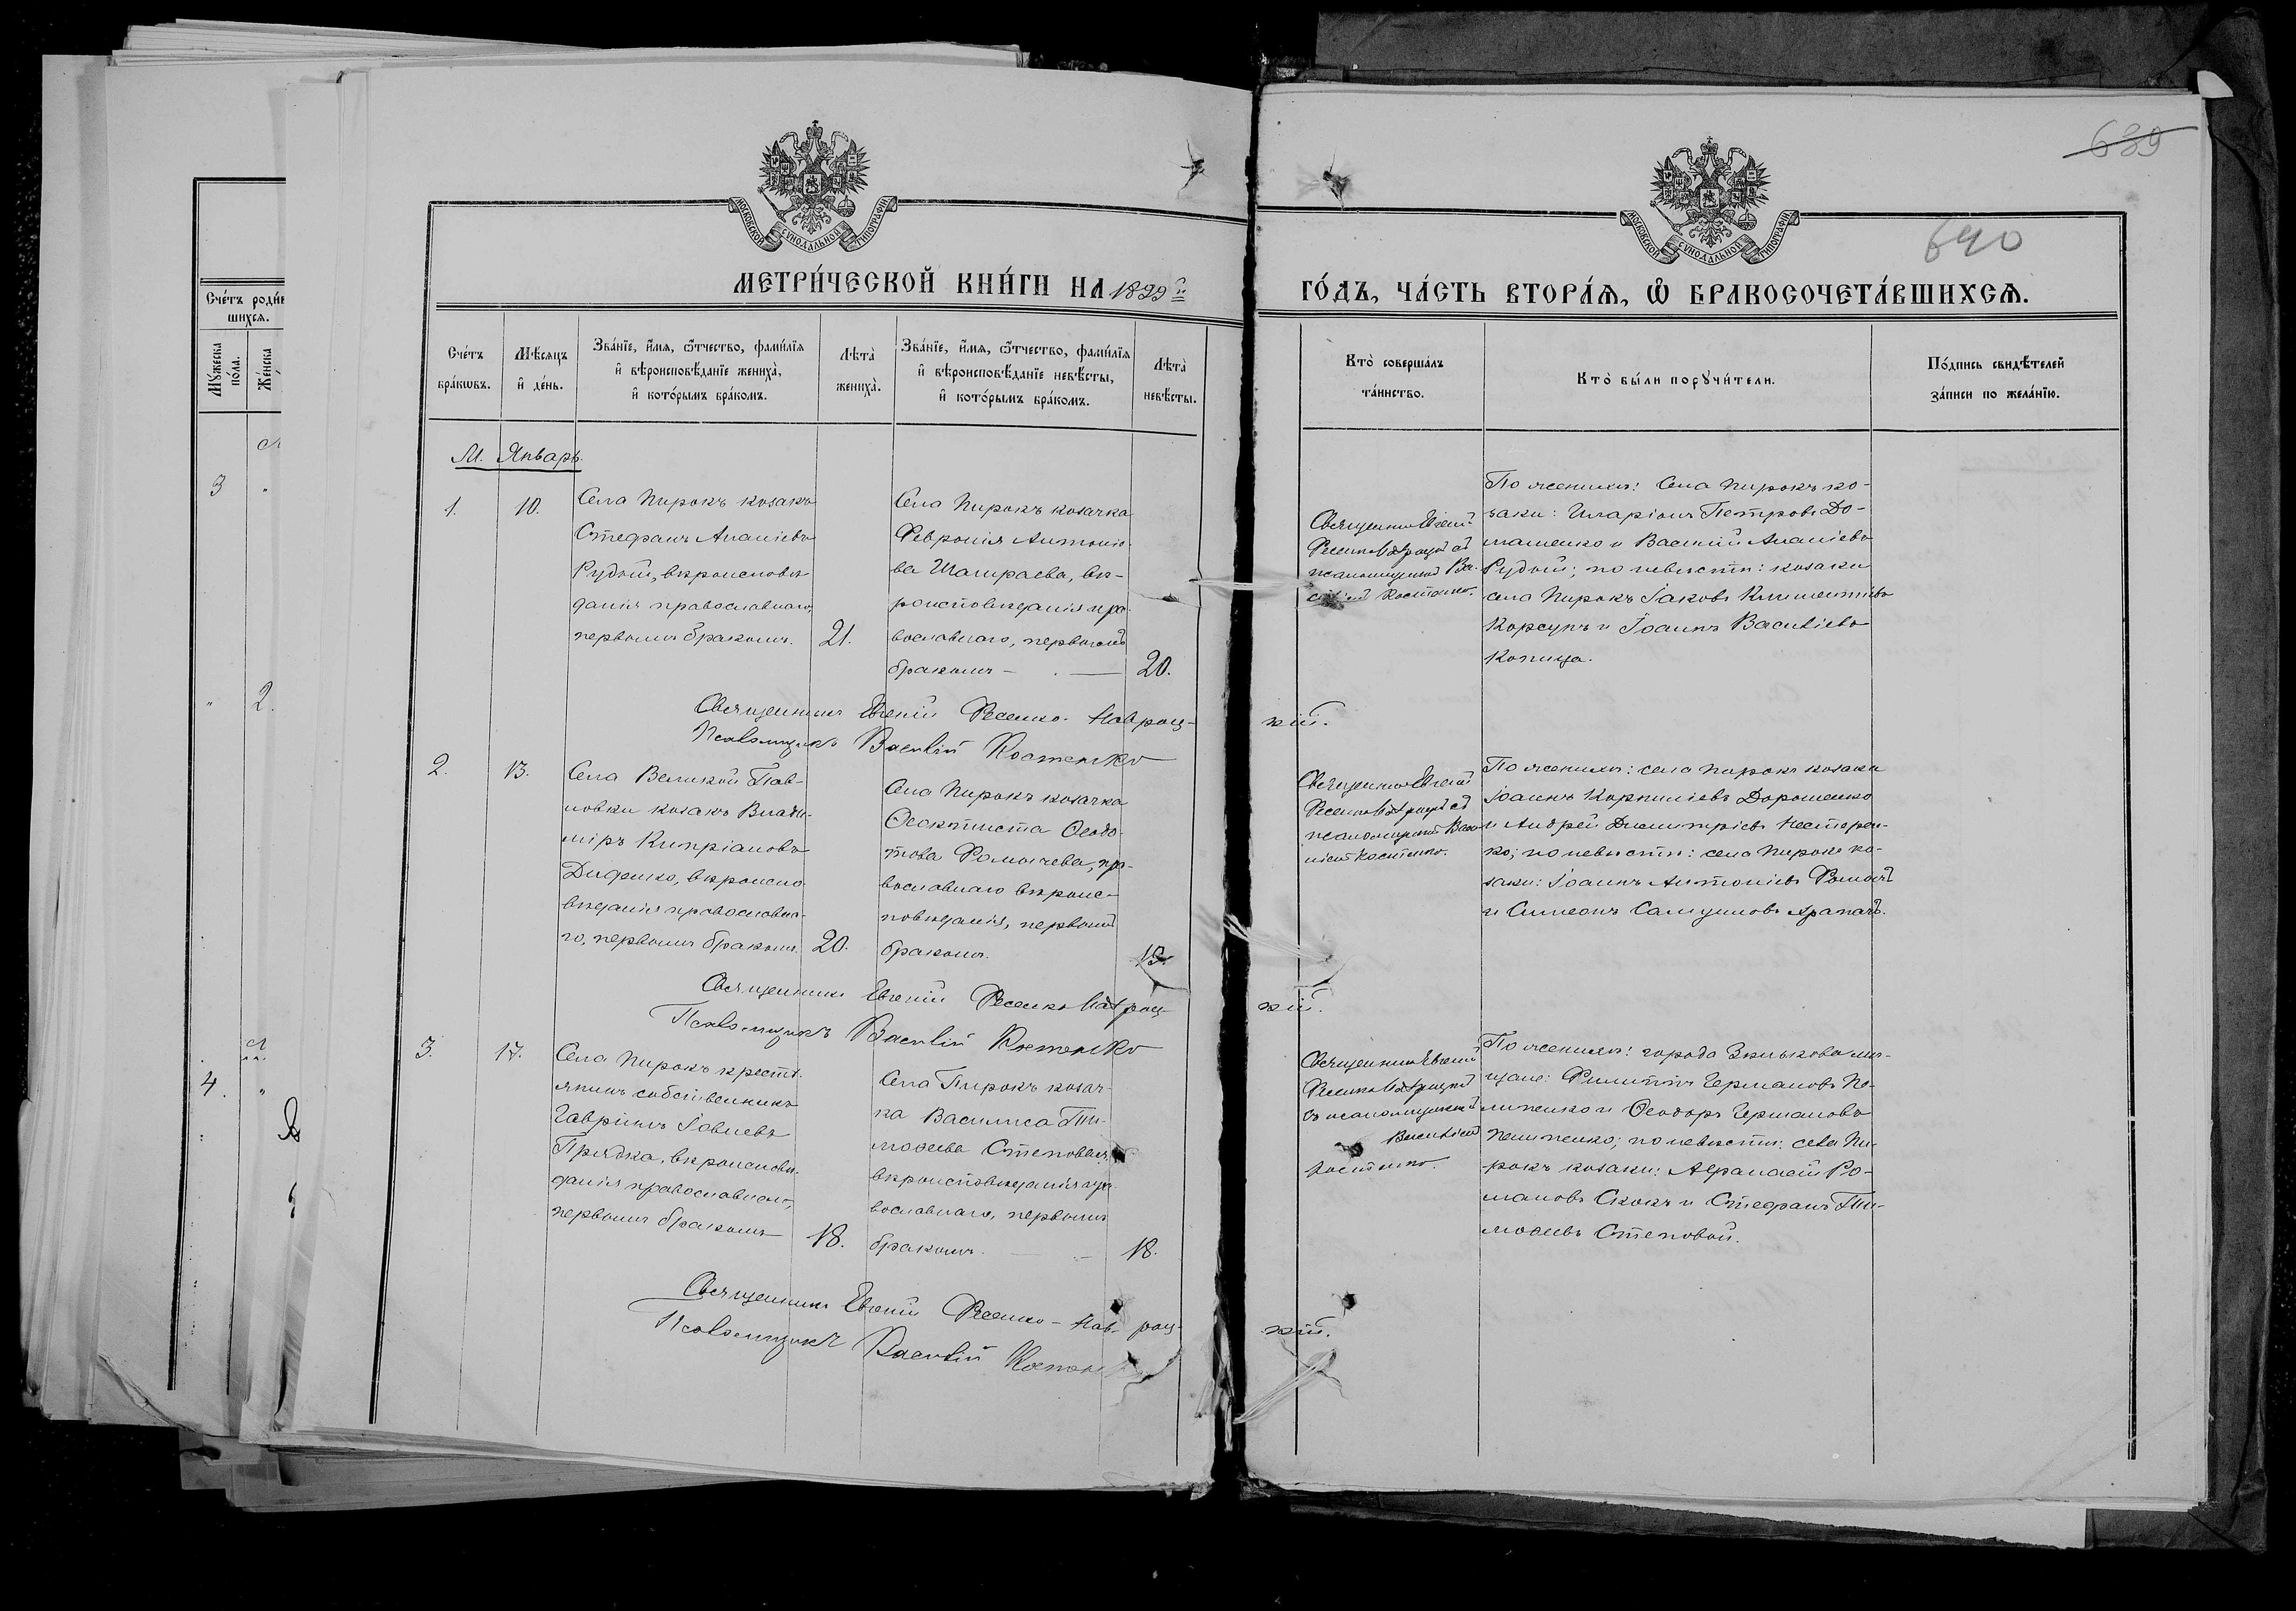 639
640
МОСКОВСКОЙ СУНОДАЛЬНОЙ ТИПОГРАФІИ
МОСКОВСКОЙ СУНОДАЛЬНОЙ ТИПОГРАФІИ
МЕТРИ́ЧЕСКОЙ КНИ́ГИ НА 1899 й
ГО́ДЪ, ЧА́СТЬ ВТОРА́Я, Ѡ БРАКОСОЧЕТА́ВШИХСЯ.
Сче́тъ роди́в
шихся.
Му́жеска
по́ла.
Же́нска
3
2.
4.
Сче́тъ
бра́ковъ.
Мѣ́сяцъ
и де́нь.
Зва́нїе, и́мя, ѻ҆́тчество, фами́лїя
и вѣроисповѣ́данїе жениха̀,
и кото́рымъ бра́комъ.
Лѣта̀
жениха̀.
Зва́нїе, и́мя, ѻ҆́тчество, фами́лїя
и вѣроисповѣ́данїе невѣ́сты,
и кото́рымъ бра́комъ.
Лѣта̀
невѣ́сты.
Кто̀ соверша́лъ
та́инство.
Кто̀ бы́ли поручи́тели.
По́дпись свидѣ́телей
за́писи по жела́нїю.
М. Январь.
1.
10.
Села Пирокъ козакъ
Стефанъ Ананіевъ
Рудый, вѣроисповѣ
данія православнаго,
первымъ бракомъ.
21.
Села Пирокъ козачка
Февронія Антоніе-
ва Шапраева, вѣ-
роисповѣданія пра-
вославнаго, первымъ
бракомъ —
20.
Священникъ Евгеній
Фесенко Навроцкій съ
псаломщикомъ Ва-
силіемъ Костенко.
По женихѣ: Села Пирокъ ко-
заки: Иларіонъ Петровъ До-
машенко и Василій Ананіевъ
Рудый; по невѣстѣ: козаки
села Пирокъ Іаковъ Климентіевъ
Корсунъ и Іоаннъ Василіевъ
Копица.
Священникъ Евгеній Фесенко-Навроц-
кій.
Псаломщикъ Василій Костенко
2.
13.
Села Великой Пав-
ловки козакъ Влади-
міръ Кипріановъ
Диденко, вѣроиспо
вѣданія православна-
го, первымъ бракомъ.
20.
Села Пирокъ козачка
Ѳеоктиста Ѳедо-
това Фомичева, пра-
вославнаго вѣроис-
повѣданія, первымъ
бракомъ.
Священникъ Евгеній
Фесенко Навроцкій съ
псаломщикомъ Васи-
ліемъ Костенко.
По женихѣ: села Пирокъ козаки
Іоаннъ Корниліевъ Дорошенко
и Андрей Димитріевъ Нестерен-
ко; по невѣстѣ: села Пирокъ ко-
заки: Іоаннъ Антоніевъ Фомичъ
и Симеонъ Самуиловъ Храпачъ.
Священникъ Евгеній Фесенко Навроц-
кій.
Псаломщикъ Василій Костенко
3.
17.
Села Пирокъ кресть
янинъ собственникъ
Гавріилъ Іовлевъ
Прядка, вѣроисповѣ-
данія православнаго,
первымъ бракомъ
18.
Села Пирокъ козач-
ка Василиса Ти-
моѳеева Степовая
вѣроисповѣданія пра-
вославнаго, первымъ
бракомъ. —
18.
Священникъ Евгеній
Фесенко Навроцкій
съ псаломщикомъ
Василіемъ
Костенко.
По женихѣ: города Зѣнькова мѣ-
щане: Филиппъ Германовъ Пи-
липенко и Ѳеодоръ Германовъ
Пилипенко; по невѣстѣ: села Пи-
рокъ козаки: Аѳанасій Ро-
мановъ Скокъ и Стефанъ Ти-
моѳеевъ Степовой.
Священникъ Евгеній Фесенко-Нав- роц-
кій.
Псаломщикъ Василій Костен